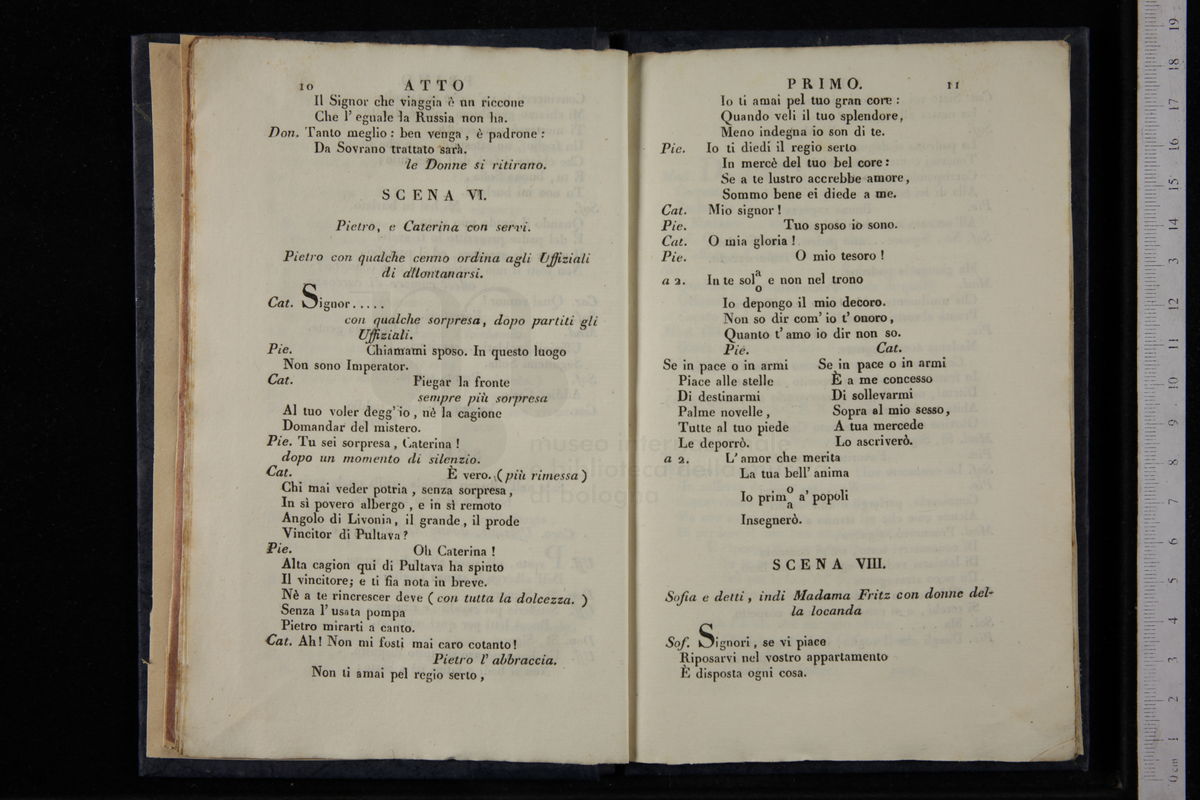 10 ATTO
Il Signor che viaggia è un riccone
Che l' eguale la Russia non ha.
Don. Tanto meglio : ben venga , è padrone :
Da Sovrano trattato sarà.
le Donne si ritirano.
SCENA VI.
Pietro, e Caterina con servi.
Pietro con qualche cenno ordina agli Uffiziali
di allontanarsi.
Cat. Signor.....
con qualche sorpresa, dopo partiti gli
Uffiziali.
Pie. Chiamami sposo. In questo luogo
Non sono Imperator.
Cat. Piegar la fronte
sempre più sorpresa
Al tuo voler degg' io , nè la cagione
Domandar del mistero.
Pie. Tu sei sorpresa , Caterina !
dopo un momento di silenzio.
Cat. È vero. ( più rimessa )
Chi mai veder potria , senza sorpresa ,
In sì povero albergo , e in sì remoto
Angolo di Livonia , il grande , il prode
Vincitor di Pultava ?
Pie. Oh Caterina !
Alta cagion qui di Pultava ha spinto
Il vincitore; e ti fia nota in breve.
Nè a te rincrescer deve ( con tutta la dolcezza. )
Senza l' usata pompa
Pietro mirarti a canto.
Cat. Ah! Non mi fosti mai caro cotanto!
Pietro l' abbraccia.
Non ti amai pel regio serto ,
PRIMO. 11
Io ti amai pel tuo gran core :
Quando veli il tuo splendore,
Meno indegna io son di te.
Pie. Io ti diedi il regio serto
In mercè del tuo bel core :
Se a te lustro accrebbe amore,
Sommo bene ei diede a me.
Cat. Mio signor !
Pie. Tuo sposo io sono.
Cat. O mia gloria !
Pie. O mio tesoro !
a 2. In te sol a/o e non nel trono
Io depongo il mio decoro.
Non so dir com' io t' onoro ,
Quanto t' amo io dir non so.
Pie. Cat.
Se in pace o in armi Se in pace o in armi
Piace alle stelle È a me concesso
Di destinarmi Di sollevarmi
Palme novelle , Sopra al mio sesso,
Tutte al tuo piede A tua mercede
Le deporrò. Lo ascriverò.
a 2. L' amor che merita
La tua bell' anima
Io prim o/a a' popoli
Insegnerò.
SCENA VIII.
Sofia e detti , indi Madama Fritz con donne del-
la locanda
Sof. Signori , se vi piace
Riposarvi nel vostro appartamento
È disposta ogni cosa.